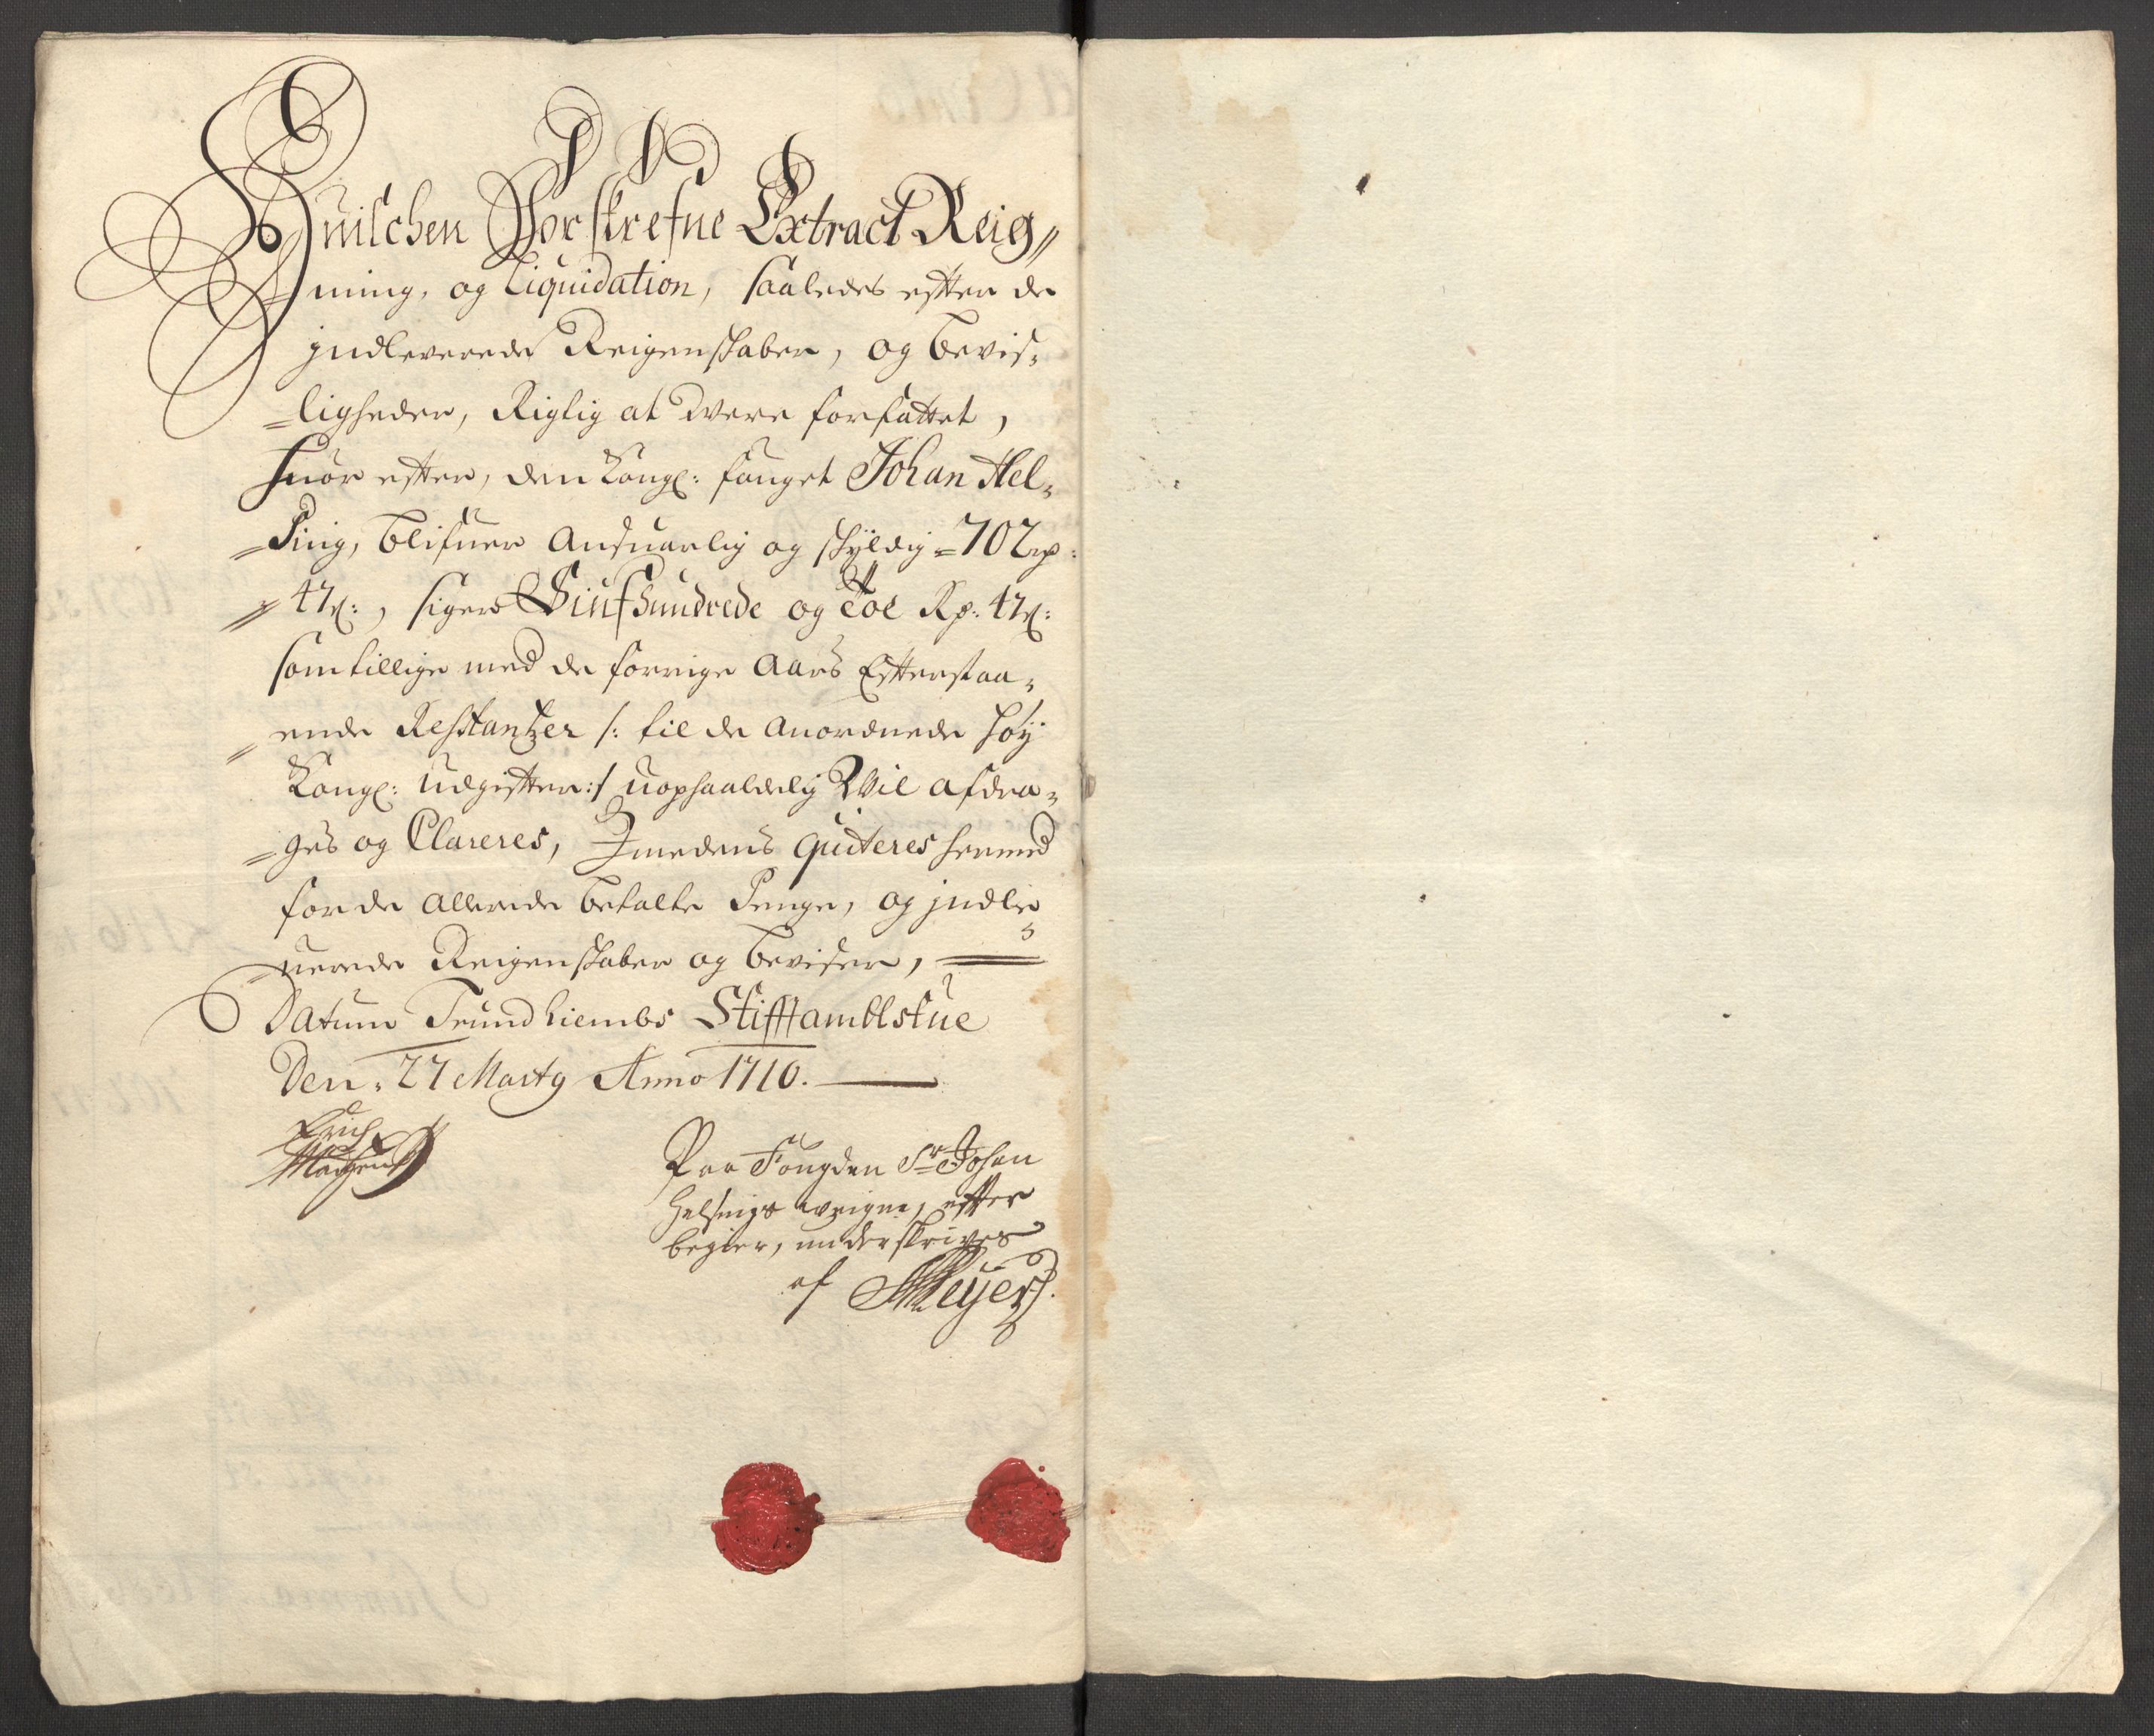 Huilchen Forskrefne Extract Reig//
=ning, og Liquidation, saaledes efter de
jndleverede Reigenskaber, og bevis=
=ligheder, Rigtig at Were forfattet,
Huor efter, den Kongl: fouget Johan Hel=
=sing, blifuer Ansuarlig og skyldig = 702 rp:
// 47 s:, siger Siufhundrede og Toe Rp: 47 s:
som tillige med de forrige Aars Efterstaa=
=ende Restantzer /: til de anordnede høy
Kongl: udgifter :/ uophaaldelig Wil afdra=
=ges og Clareres, Imedens quiteres hermed
for de allerede betalte Penge, og jndle=
=uerede Reigenskaber og beviser,
Datum Trundhiembs Stifftambtstue
Den. 27 Marty Anno 1710.
Paa Fougden Sr Johan
Helsings weigne, efter
begier, underskrives
af Meyer